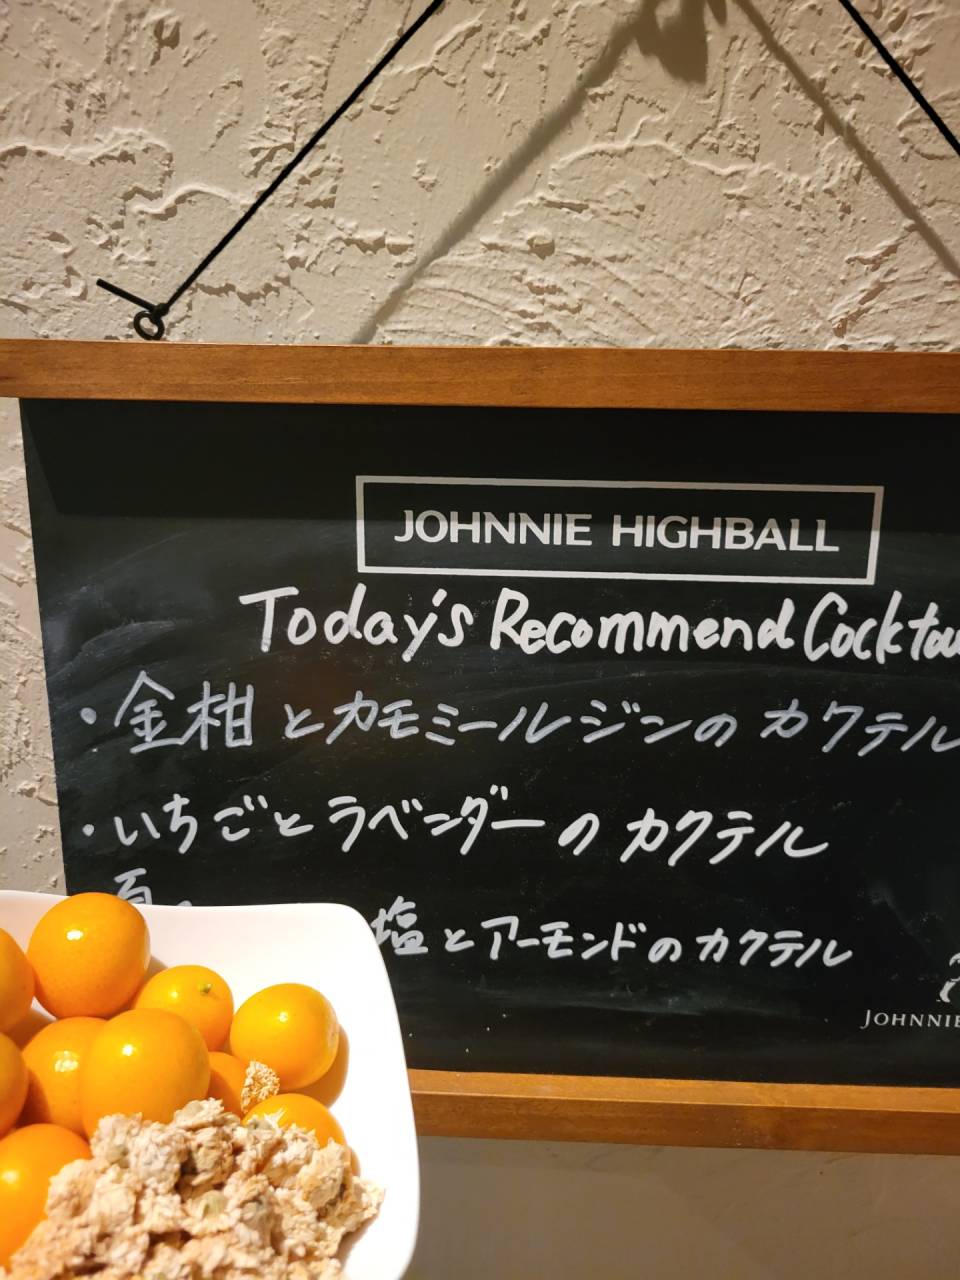 JOHNNIE HIGHBALL
Today's Recommend
・金柑とカモミールジンのカクテル
・いちごとラベンダーのカクテル
塩とアーモンドのカクテル
JOHNNIE